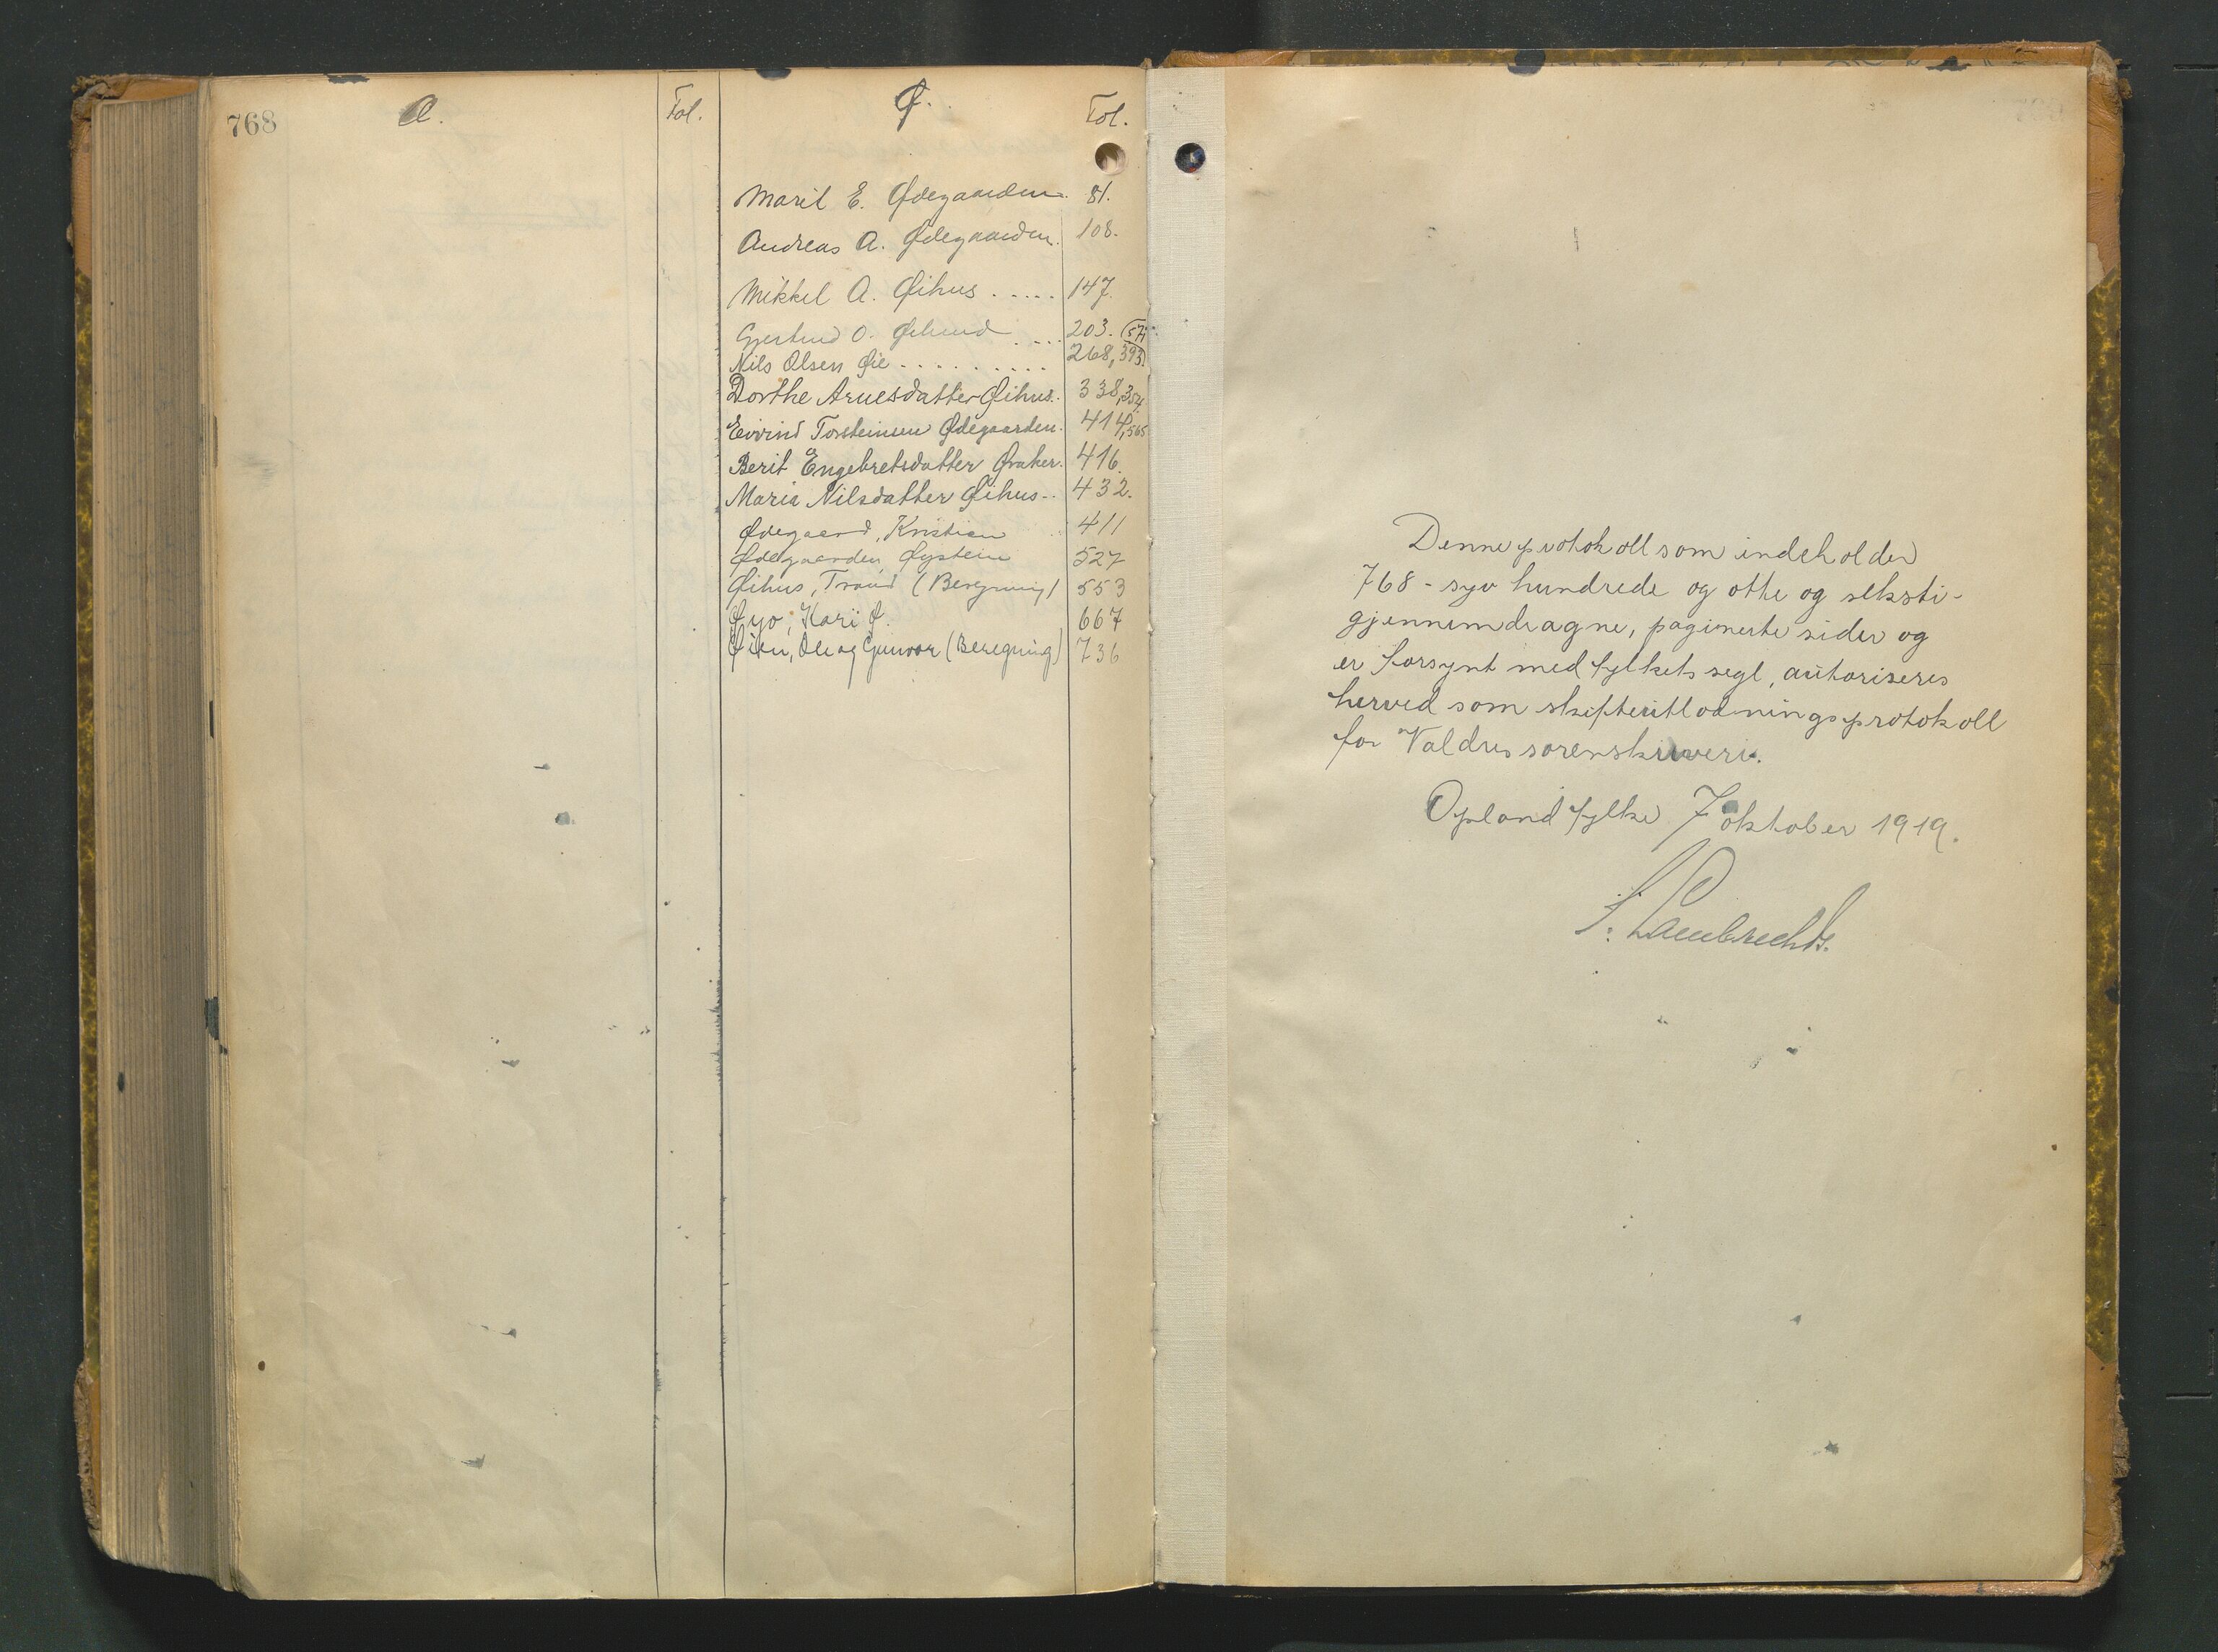 768
Æ.
Fol.
Ø.
Fol.
Marit E. Ødegaarden. 81.
Andreas A. Ødegaarden. 108.
Mikkel A. Øihus ..... 147.
Gjertrud O. Øilund .... 203. (571
Nils Olsen Øie ......... 268, 393.
Dorthe Arnesdatter Øihus.. 338, 354.
Eivind Torsteinsen Ødegaarden. 414, 565
Berit Engebretsdatter Øvaker. 416.
Maria Nilsdatter Øihus.. 432.
Ødegaard, Kristian .. 411
Ødegaarden, Øystein 527
Øihus, Trond (Beregning) 553
Øyo, Kari Ø. 667
Øien, Ole og Gunvor (Beregning) 736
Denne protokoll som indeholder
768 - syv hundrede og otte og seksti -
gjennemdragne, paginerte sider og
er forsynt med fylkets segl, autoriseres
herved som skifteutlodningsprotokoll
for Valdres sorenskriveri.
Opland fylke 7 oktober 1919.
Lambrechts.